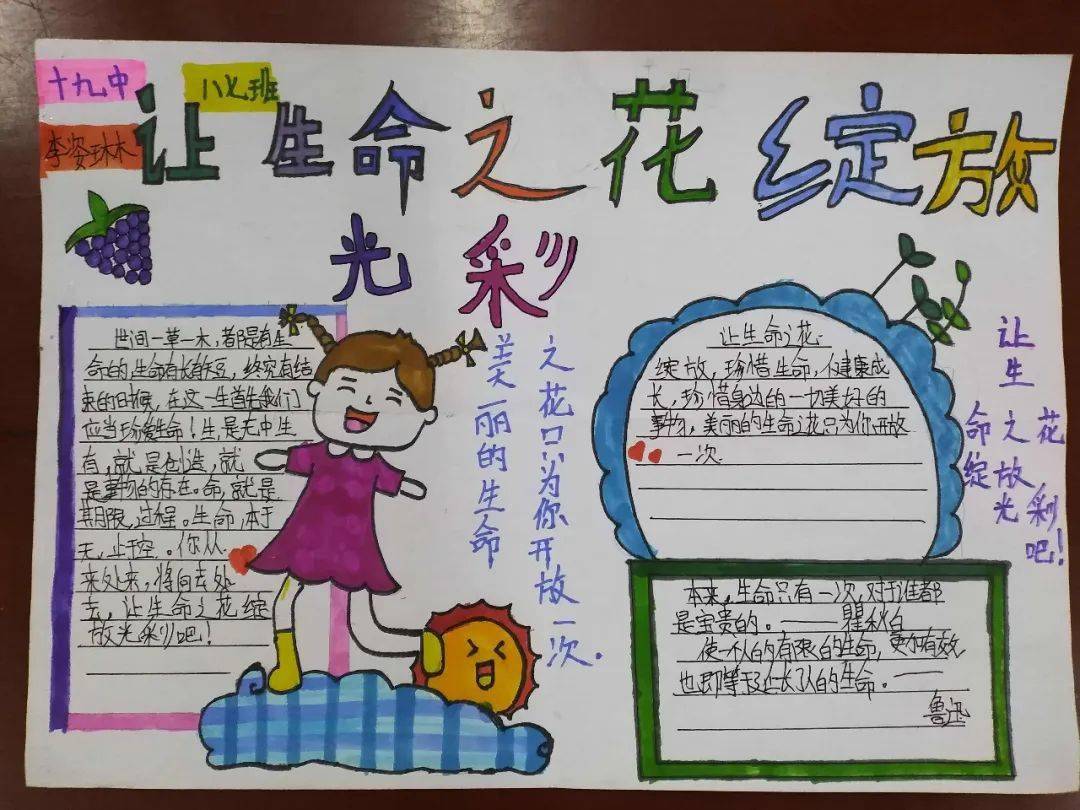 十九中
八七班
李姿琳
让生命之花绽放
光彩
世间一草一木，都是有生
命的，生命有长有短，终究有结
束的时候，在这一生首先我们
应当珍爱生命！生，是无中生
有，就是创造，就
是事物的存在。命，就是
期限，过程。生命，本于
无，止于空，。你从
来处来，将向去处
去，让生命之花绽
放光彩吧！
美丽的生命
之花只为你开放一次.
让生命之花
绽放，珍惜生命，健康成
长，珍惜身边的一切美好的
事物，美丽的生命之花只为你开放
一次.
让生
命之花
绽放
光彩
吧！
本来，生命只有一次，对于谁都
是宝贵的。——瞿秋白
使一个人的有限的生命，更加有效，
也即等于延长了人的生命。——
鲁迅